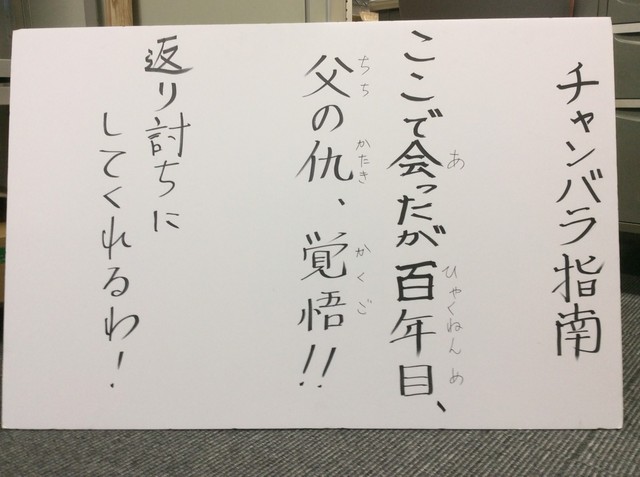 チャンバラ指南
ここで会ったが百年目、
あ
ひゃくねんめ
父の仇、覚悟!!
ちち
かたき
かくご
返り討ちに
してくれるわ!